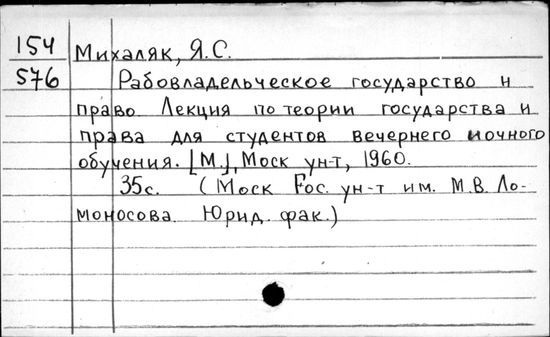 154 Михаляк, Я.С.
576 Рабовладельческое государство и
право. Лекция по теории государства и
права для студентов вечернего и очного
обучения. [М.], Моск ун-т, 1960.
35с. (Моск Гос. ун-т им. М.В. Ло-
моносова. Юрид. фак.)